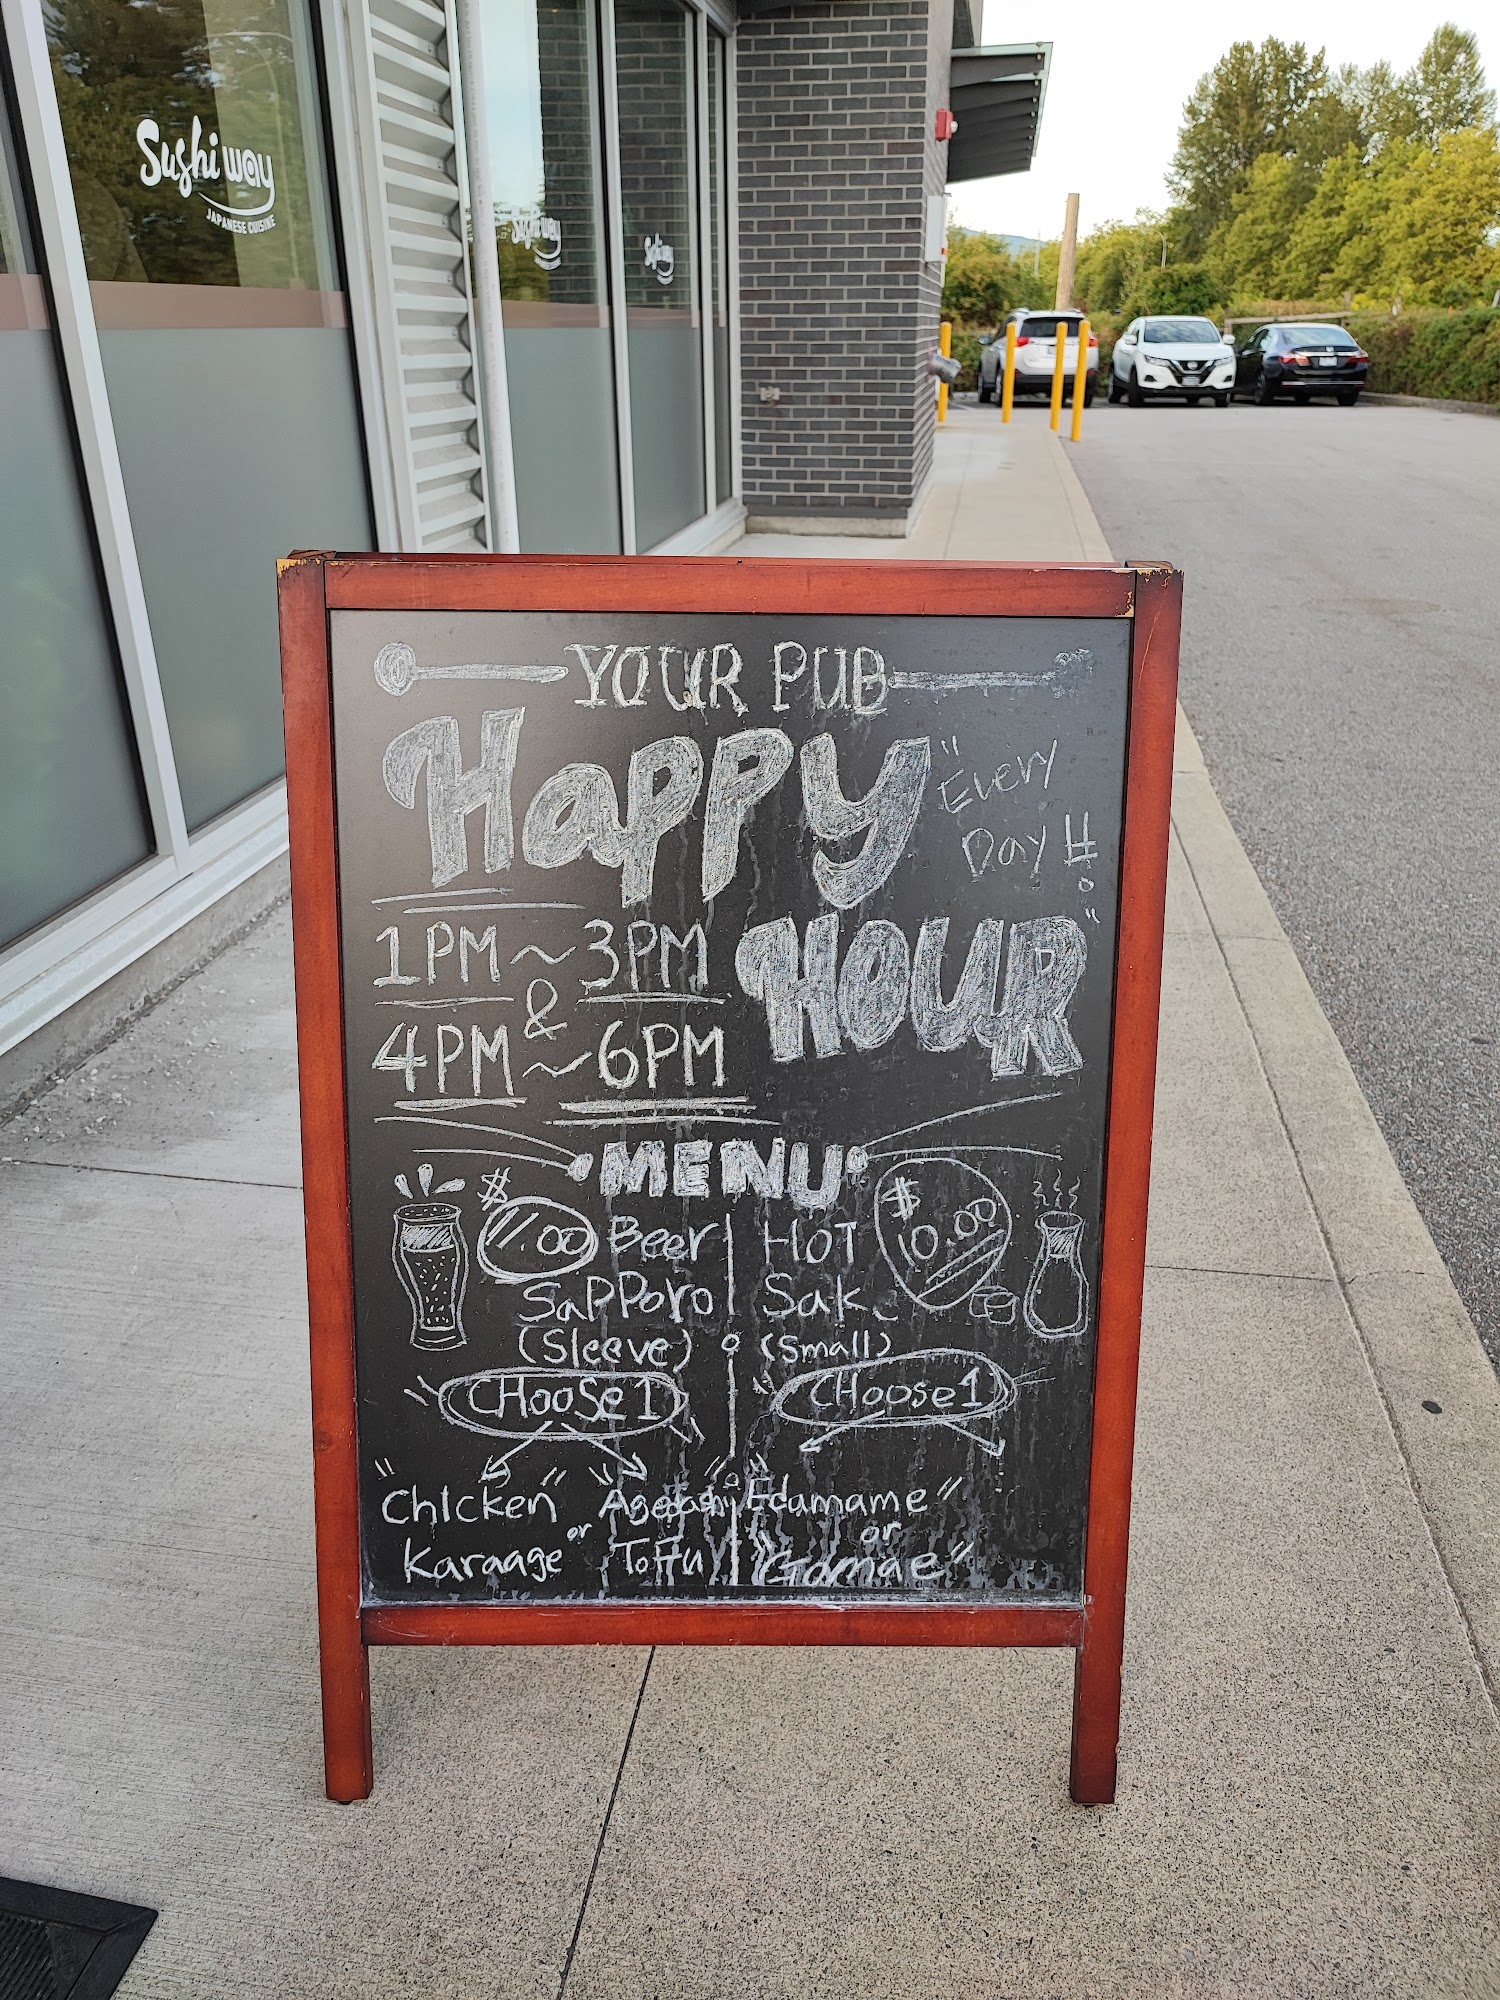 Sushi way
JAPANESE CUISINE
Sushi way
Sushi
YOUR PUB
Happy
"Every
Day !!"
HOUR
1PM ~ 3PM
&
4PM ~ 6PM
MENU
$11.00 Beer
Sapporo
(Sleeve)
CHOOSE 1
"Chicken
Karaage"
or
"Agedashi
Tofu"
HOT $10.00
Sake
(Small)
CHOOSE 1
"Edamame"
or
"Gomae"